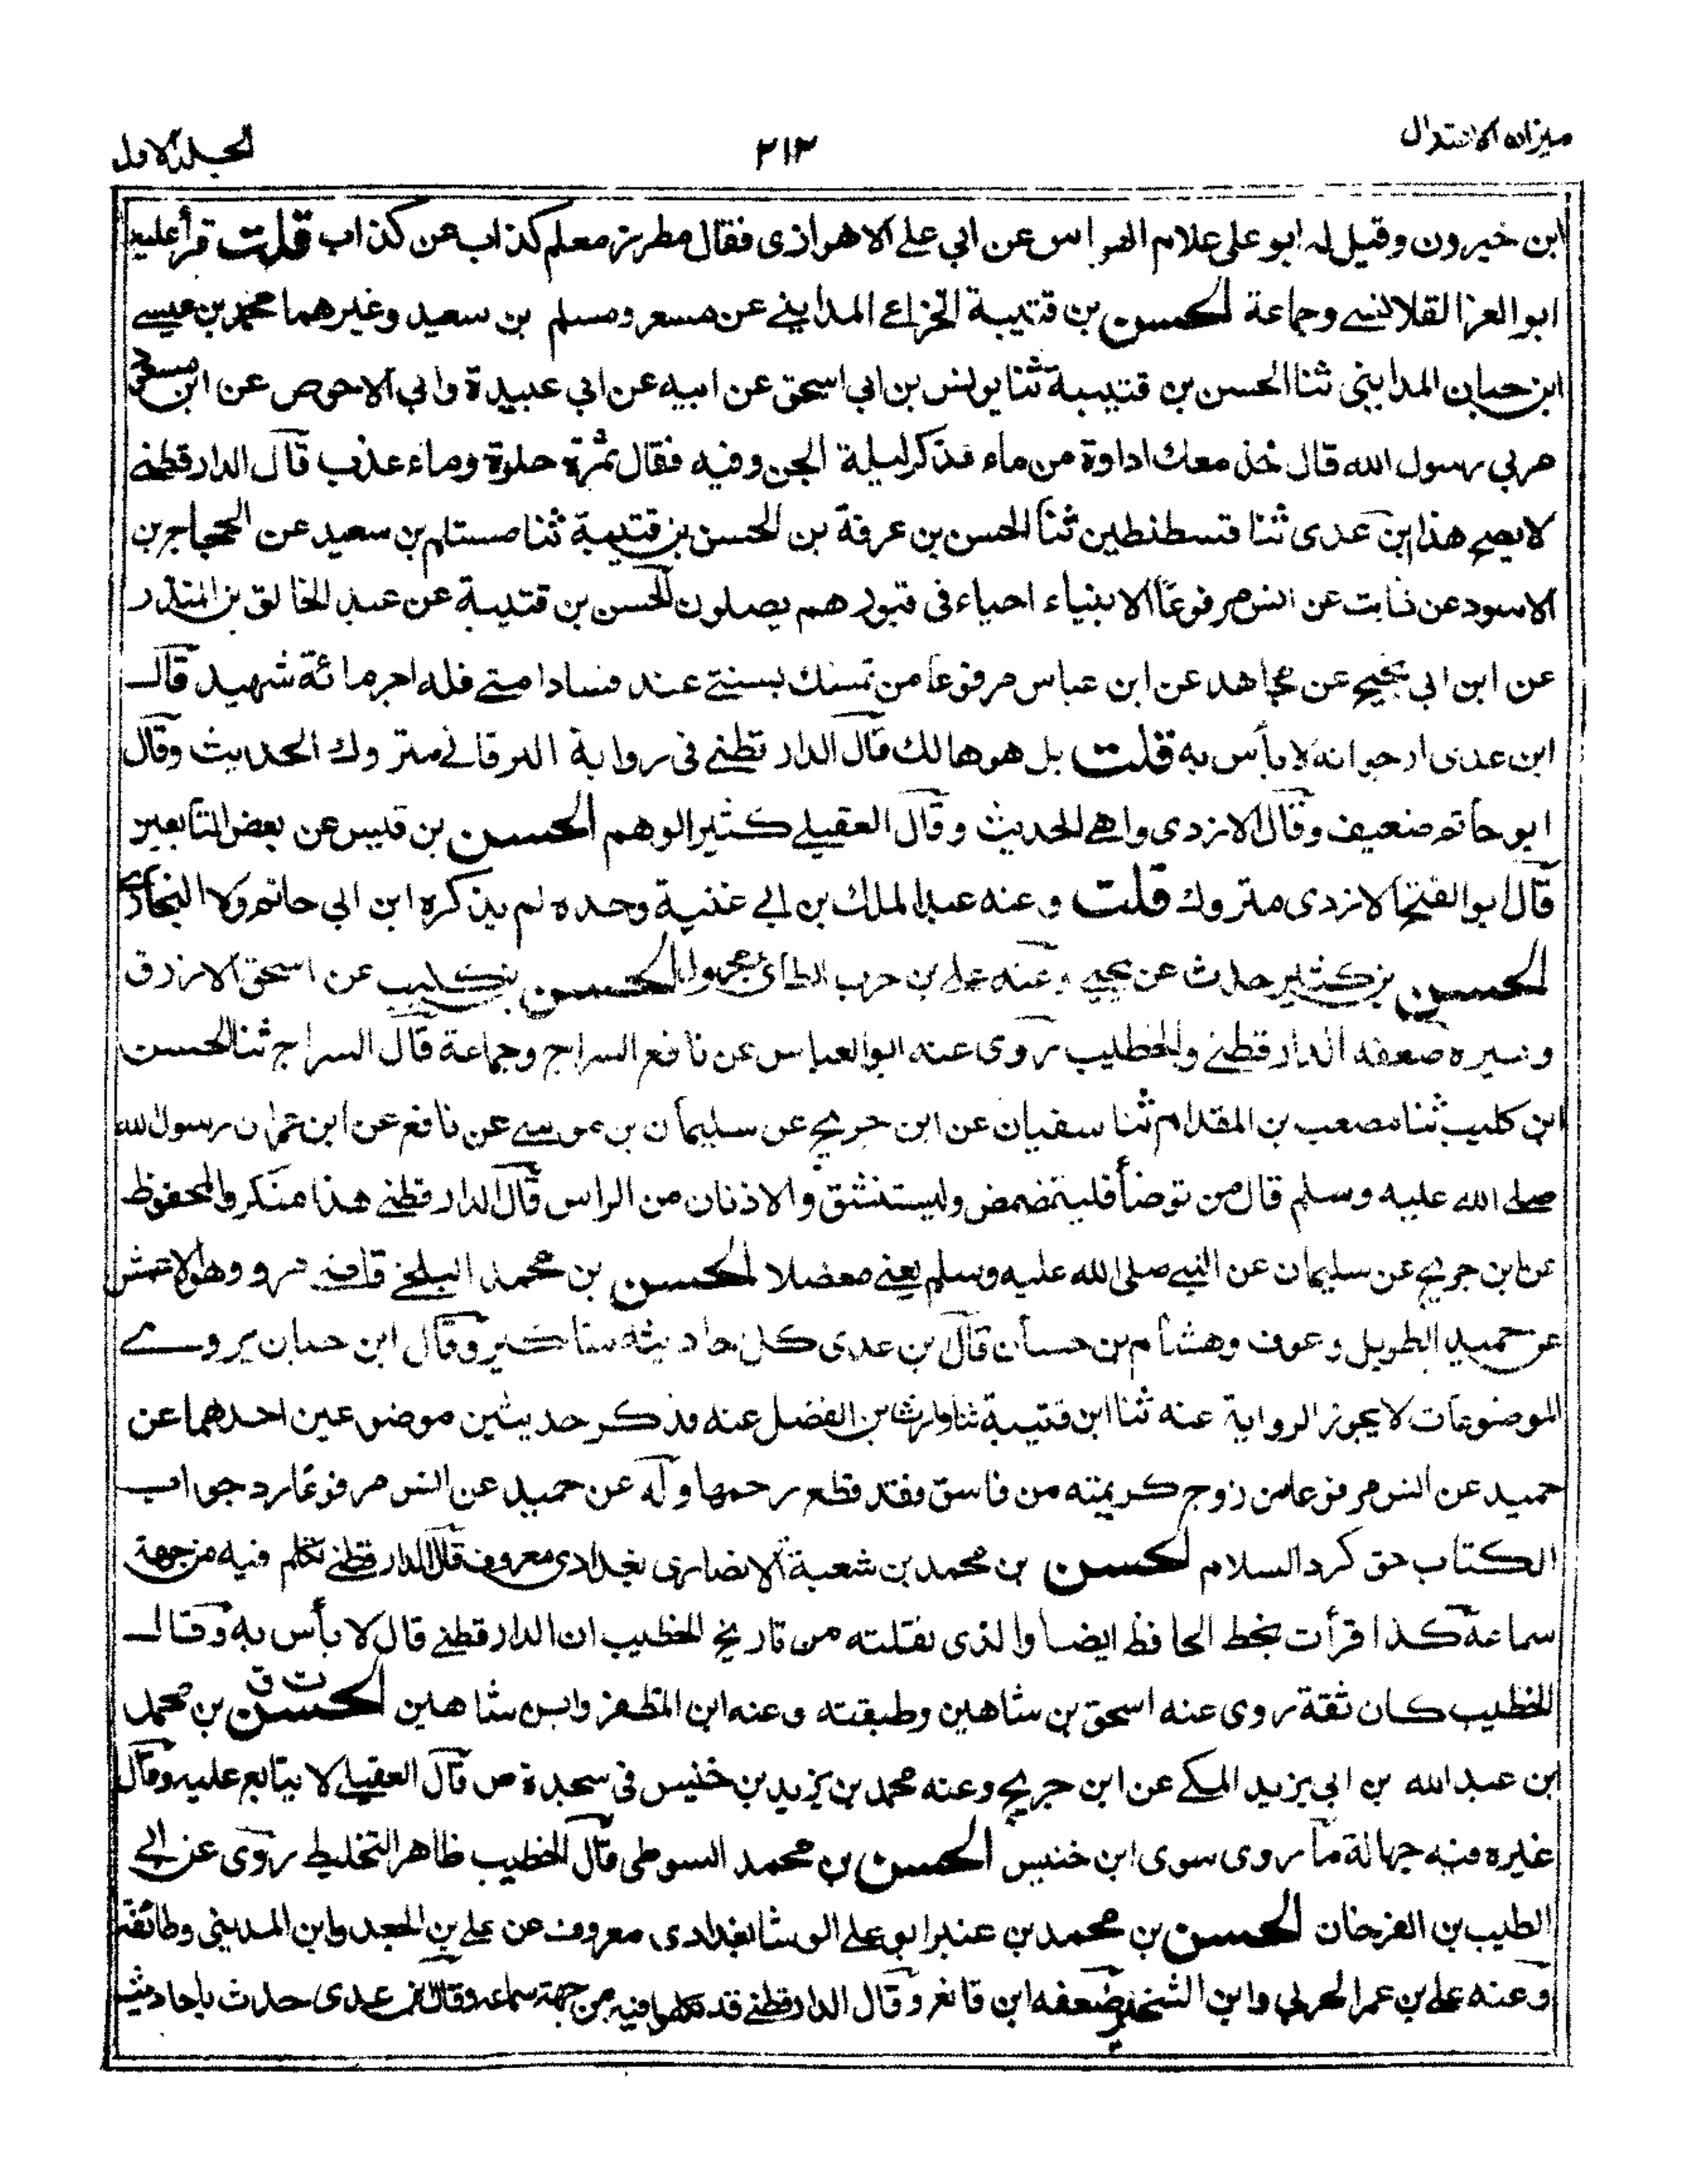 ميزان الاعتدال
٢١٣
الجلد الاول
ابن خيرون وقيل له ابو على غلام الهراس عن ابي علے الاهوازى فقال مطرز معلم كذاب عن كذاب قلت قرأ عليه
ابو العز القلانسے وجماعة الحسن بن قتيبة الخزاعے المداينے عن مسعر ومسلم بن سعيد وغيرهما محمد بن عيسے
ابن حبان المدايني ثنا الحسن بن قتيبة ثنا يونس بن ابى اسحق عن ابيه عن ابي عبيدة وابي الاحوص عن ابن مسعود
مر بي رسول الله قال خذ معك اداوة من ماء فذكر ليلة الجن وفيه فقال تمرة حلوة وماء عذب قال الدارقطنے
لا يصح هذا ابن عدى ثنا قسطنطين ثنا الحسن بن عرفة بن الحسن بن قتيبة ثنا مستلم بن سعيد عن الحجاج بن
الاسود عن ثابت عن انس مرفوعًا الانبياء احياء فى قبورهم يصلون الحسن بن قتيبة عن عبد الخالق بن المنذر
عن ابن ابى نجيح عن مجاهد عن ابن عباس مرفوعًا من تمسك بسنتے عند فساد امتے فله اجر مائة شهيد قال
ابن عدى ارجو انه لا بأس به قلت بل هو هالك قال الدارقطنے فى رواية البرقانے متروك الحديث وقال
ابو حاتم ضعيف وقال الازدى واهے الحديث وقال العقيلے كثير الوهم الحسن بن قيس عن بعض التابعين
قال ابو الفتح الازدى متروك قلت وعنه عبد الملك بن ابے غنية وحده لم يذكره ابن ابي حاتم ولا البخارى
الحسن بن كثير حدث عن يحيے وعنه علے بن حرب الطائى مجهول الحسن بن كليب عن اسحق الازرق
وغيره ضعفه الدارقطنے والخطيب روى عنه ابو العباس عن نافع السراج وجماعة قال السراج ثنا الحسن
ابن كليب ثنا مصعب بن المقدام ثنا سفيان عن ابن جريج عن سليمان بن موسے عن نافع عن ابن عمر ان رسول الله
صلے الله عليه وسلم قال من توضأ فليتمضمض وليستنشق والاذنان من الراس قال الدارقطنے هذا منكر والمحفوظ
عن ابن جريج عن سليمان عن النبے صلى الله عليه وسلم يعنے معضلا الحسن بن محمد البلخے قاضے مرو وهو الاعمش
عن حميد الطويل وعوف وهشام بن حسان قال بن عدى كل احاديثه مناكير وقال ابن حبان يروے
الموضوعات لا يجوز الرواية عنه ثنا ابن قتيبة ثنا وارث بن الفضل عنه فذكر حديثين موضوعين احدهما عن
حميد عن انس مرفوعا من زوج كريمته من فاسق فقد قطع رحمها وله عن حميد عن انس مرفوعًا رد جواب
الكتاب حق كرد السلام الحسن بن محمد بن شعبة الانصارى بغدادى معروف قال الدارقطنے تكلم فيه من جهة
سماعة كذا قرأت بخط الحافظ ايضا والذى نقلته من تاريخ الخطيب ان الدارقطنے قال لا بأس به وقال
الخطيب كان ثقة روى عنه اسحق بن شاهين وطبقته وعنه ابن المظفر وابن شاهين ت ق الحسن بن محمد
ابن عبد الله بن ابي يزيد المكے عن ابن جريج وعنه محمد بن يزيد بن خنيس فى سجدة ص قال العقيلے لا يتابع عليه وقال
غيره فيه جهالة ما روى سوى ابن خنيس الحسن بن محمد السوطى قال الخطيب ظاهر التخليط روى عن ابے
الطيب بن الفرخان الحسن بن محمد بن عنبر ابو علے الوشا بغدادى معروف عن علے بن الجعد وابن المديني وطائفة
وعنه علے بن عمر الحربي وابن الشخير ضعفه ابن قانع وقال الدارقطنے قد تكلموا فيه من جهة سماعه وقال ابن عدى حدث باحاديث